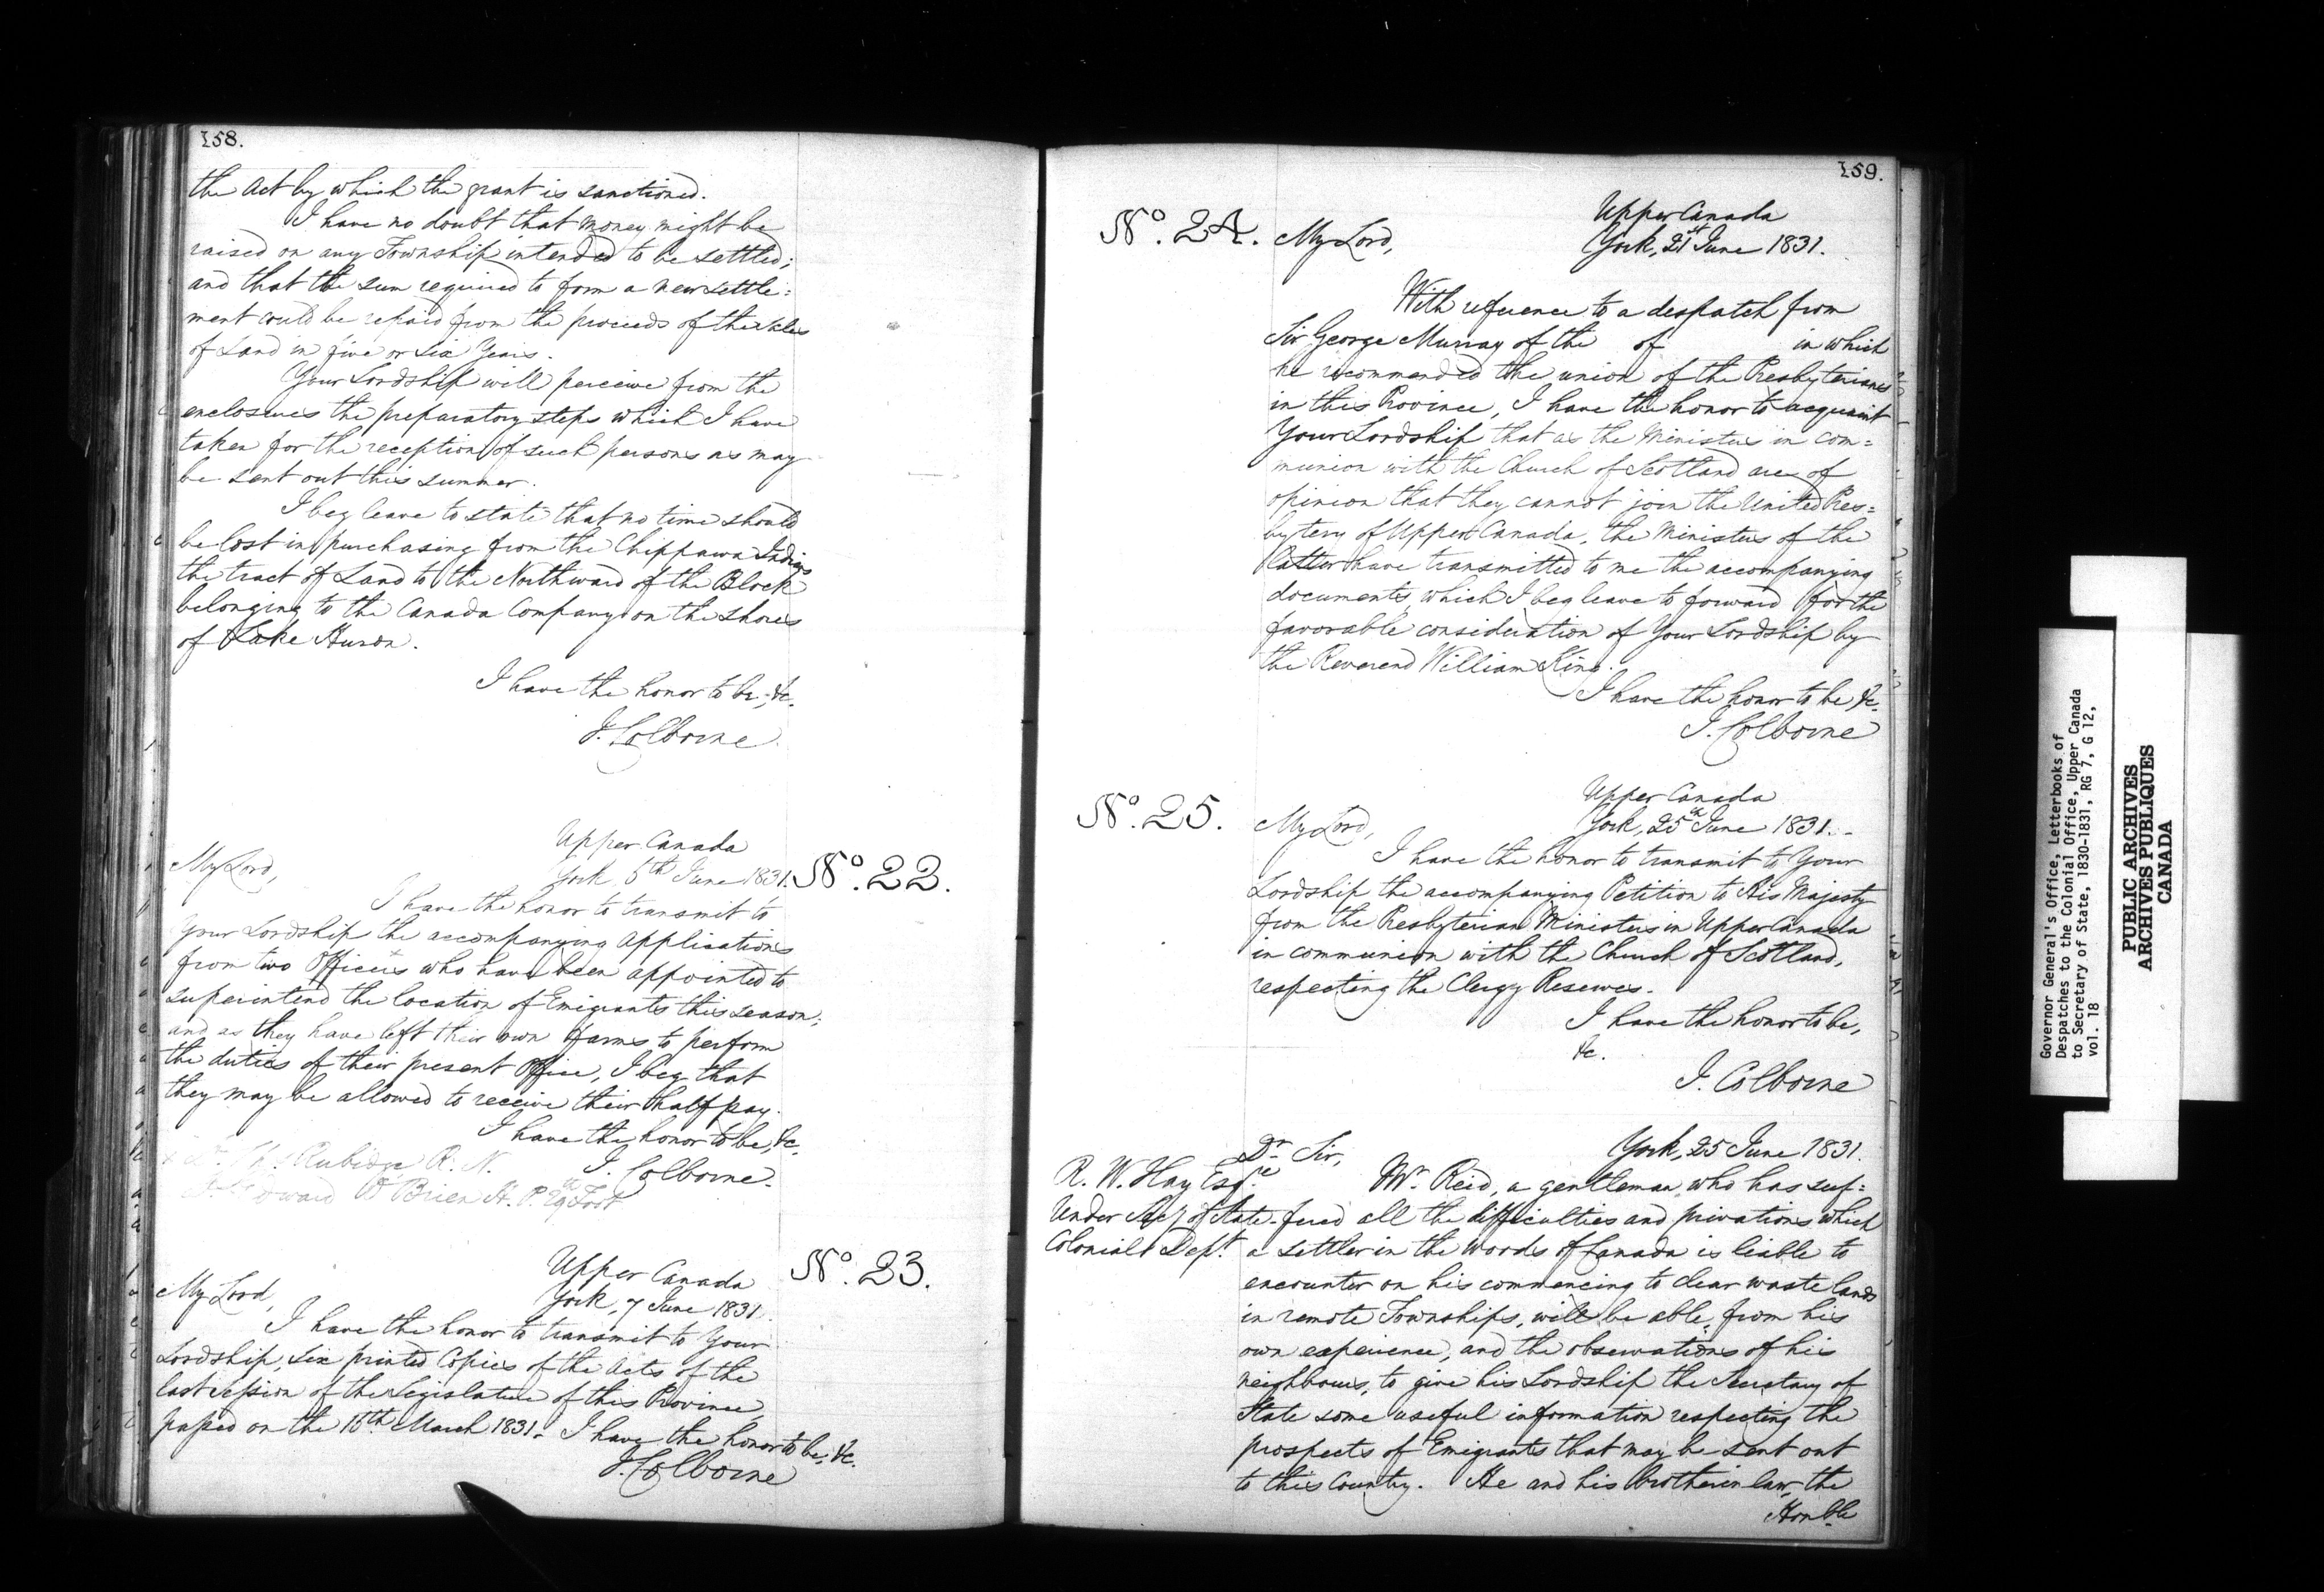 158.
the Act by which the grant is sanctioned.
I have no doubt that money might be
raised on any Township intended to be settled;
and that the sum required to form a new settle=
ment could be repaid from the proceeds of the sales
of Land in five or six Years.
Your Lordship will perceive from the
enclosures the preparatory steps which I have
taken for the reception of such persons as may
be sent out this summer.
I beg leave to state that no time should
be lost in purchasing from the Chippawa Indians
the tract of Land to the Northward of the Block
belonging to the Canada Company on the Shores
of Lake Huron.
I have the honor to be, &c.
J. Colborne
Upper Canada
York, 6th June 1831.
No. 22.
My Lord,
I have the honor to transmit to
Your Lordship the accompanying applications
from two Officers who have been appointed to
superintend the location of Emigrants this season;
and as they have left their own farms to perform
the duties of their present Office, I beg that
they may be allowed to receive their half pay.
I have the honor to be, &c.
J. Colborne.
Rubidge R. N.
Edward O'Brien H. P. Foot
Upper Canada
York, 7 June 1831.
No. 23.
My Lord,
I have the honor to transmit to Your
Lordship, Six printed Copies of the Acts of the
last Session of the Legislature of this Province,
passed on the 16th March 1831. I have the honor to be, &c.
J. Colborne
159.
Upper Canada
York, 21st June 1831.
No. 24.
My Lord,
With reference to a despatch from
Sir George Murray of the of in which
he recommended the union of the Presbyterians
in this Province, I have the honor to acquaint
Your Lordship that as the Ministers in com=
munion with the Church of Scotland are of
opinion that they cannot join the United Pres=
bytery of Upper Canada, the Ministers of the
latter have transmitted to me the accompanying
documents, which I beg leave to forward for the
favorable consideration of Your Lordship by
the Reverend William King.
I have the honor to be &c.
J. Colborne
Upper Canada
York, 25th June 1831.
No. 25.
My Lord,
I have the honor to transmit to Your
Lordship the accompanying Petition to His Majesty
from the Presbyterian Ministers in Upper Canada
in communion with the Church of Scotland,
respecting the Clergy Reserves.
I have the honor to be,
&c.
J. Colborne
York, 25 June 1831.
Dr Sir,
R. W. Hay Esqre
Under Secy of State
Colonial Dept.
Mr. Reid, a gentleman who has suf=
fered all the difficulties and privations which
a settler in the woods of Canada is liable to
encounter on his commencing to clear waste lands
in remote Townships, will be able, from his
own experience, and the observations of his
neighbours, to give his Lordship the Secretary of
State some useful information respecting the
prospects of Emigrants that may be sent out
to this Country. He and his brother in law, the
Honble
Governor General's Office, Letterbooks of
Despatches to the Colonial Office, Upper Canada
to Secretary of State, 1830-1831, RG 7, G 12,
vol. 18
PUBLIC ARCHIVES
ARCHIVES PUBLIQUES
CANADA